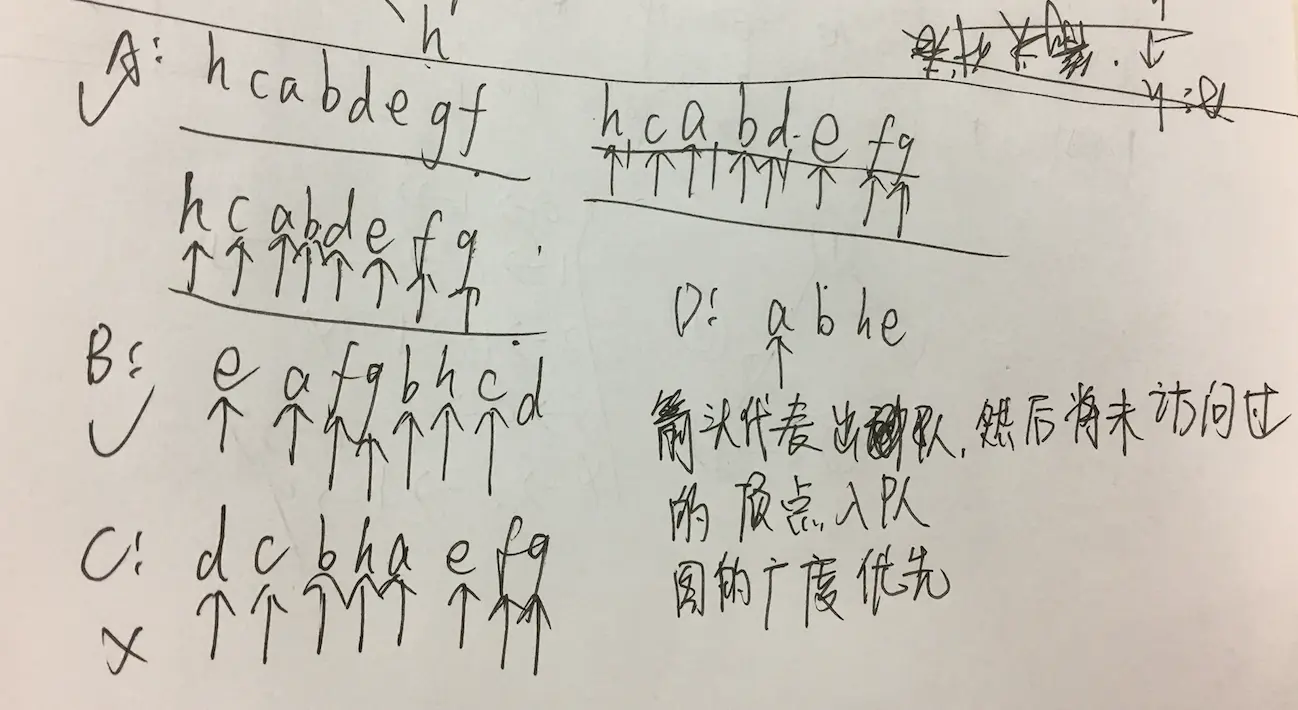 h
A: h c a b d e g f
h c a b d e f g
h c a b d e f g
B: e a f g b h c d
C: d c b h a e f g
D: a b h e
箭头代表出队,然后将未访问过
的顶点入队
图的广度优先